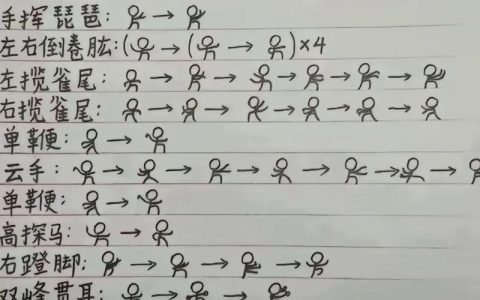 手挥琵琶: → 
左右倒卷肱:( → ( → )×4
左揽雀尾: → → → → →
右揽雀尾: → → → → →
单鞭: →
云手: → → → → → →
单鞭: →
高探马: →
右蹬脚: → → →
双峰贯耳: → →